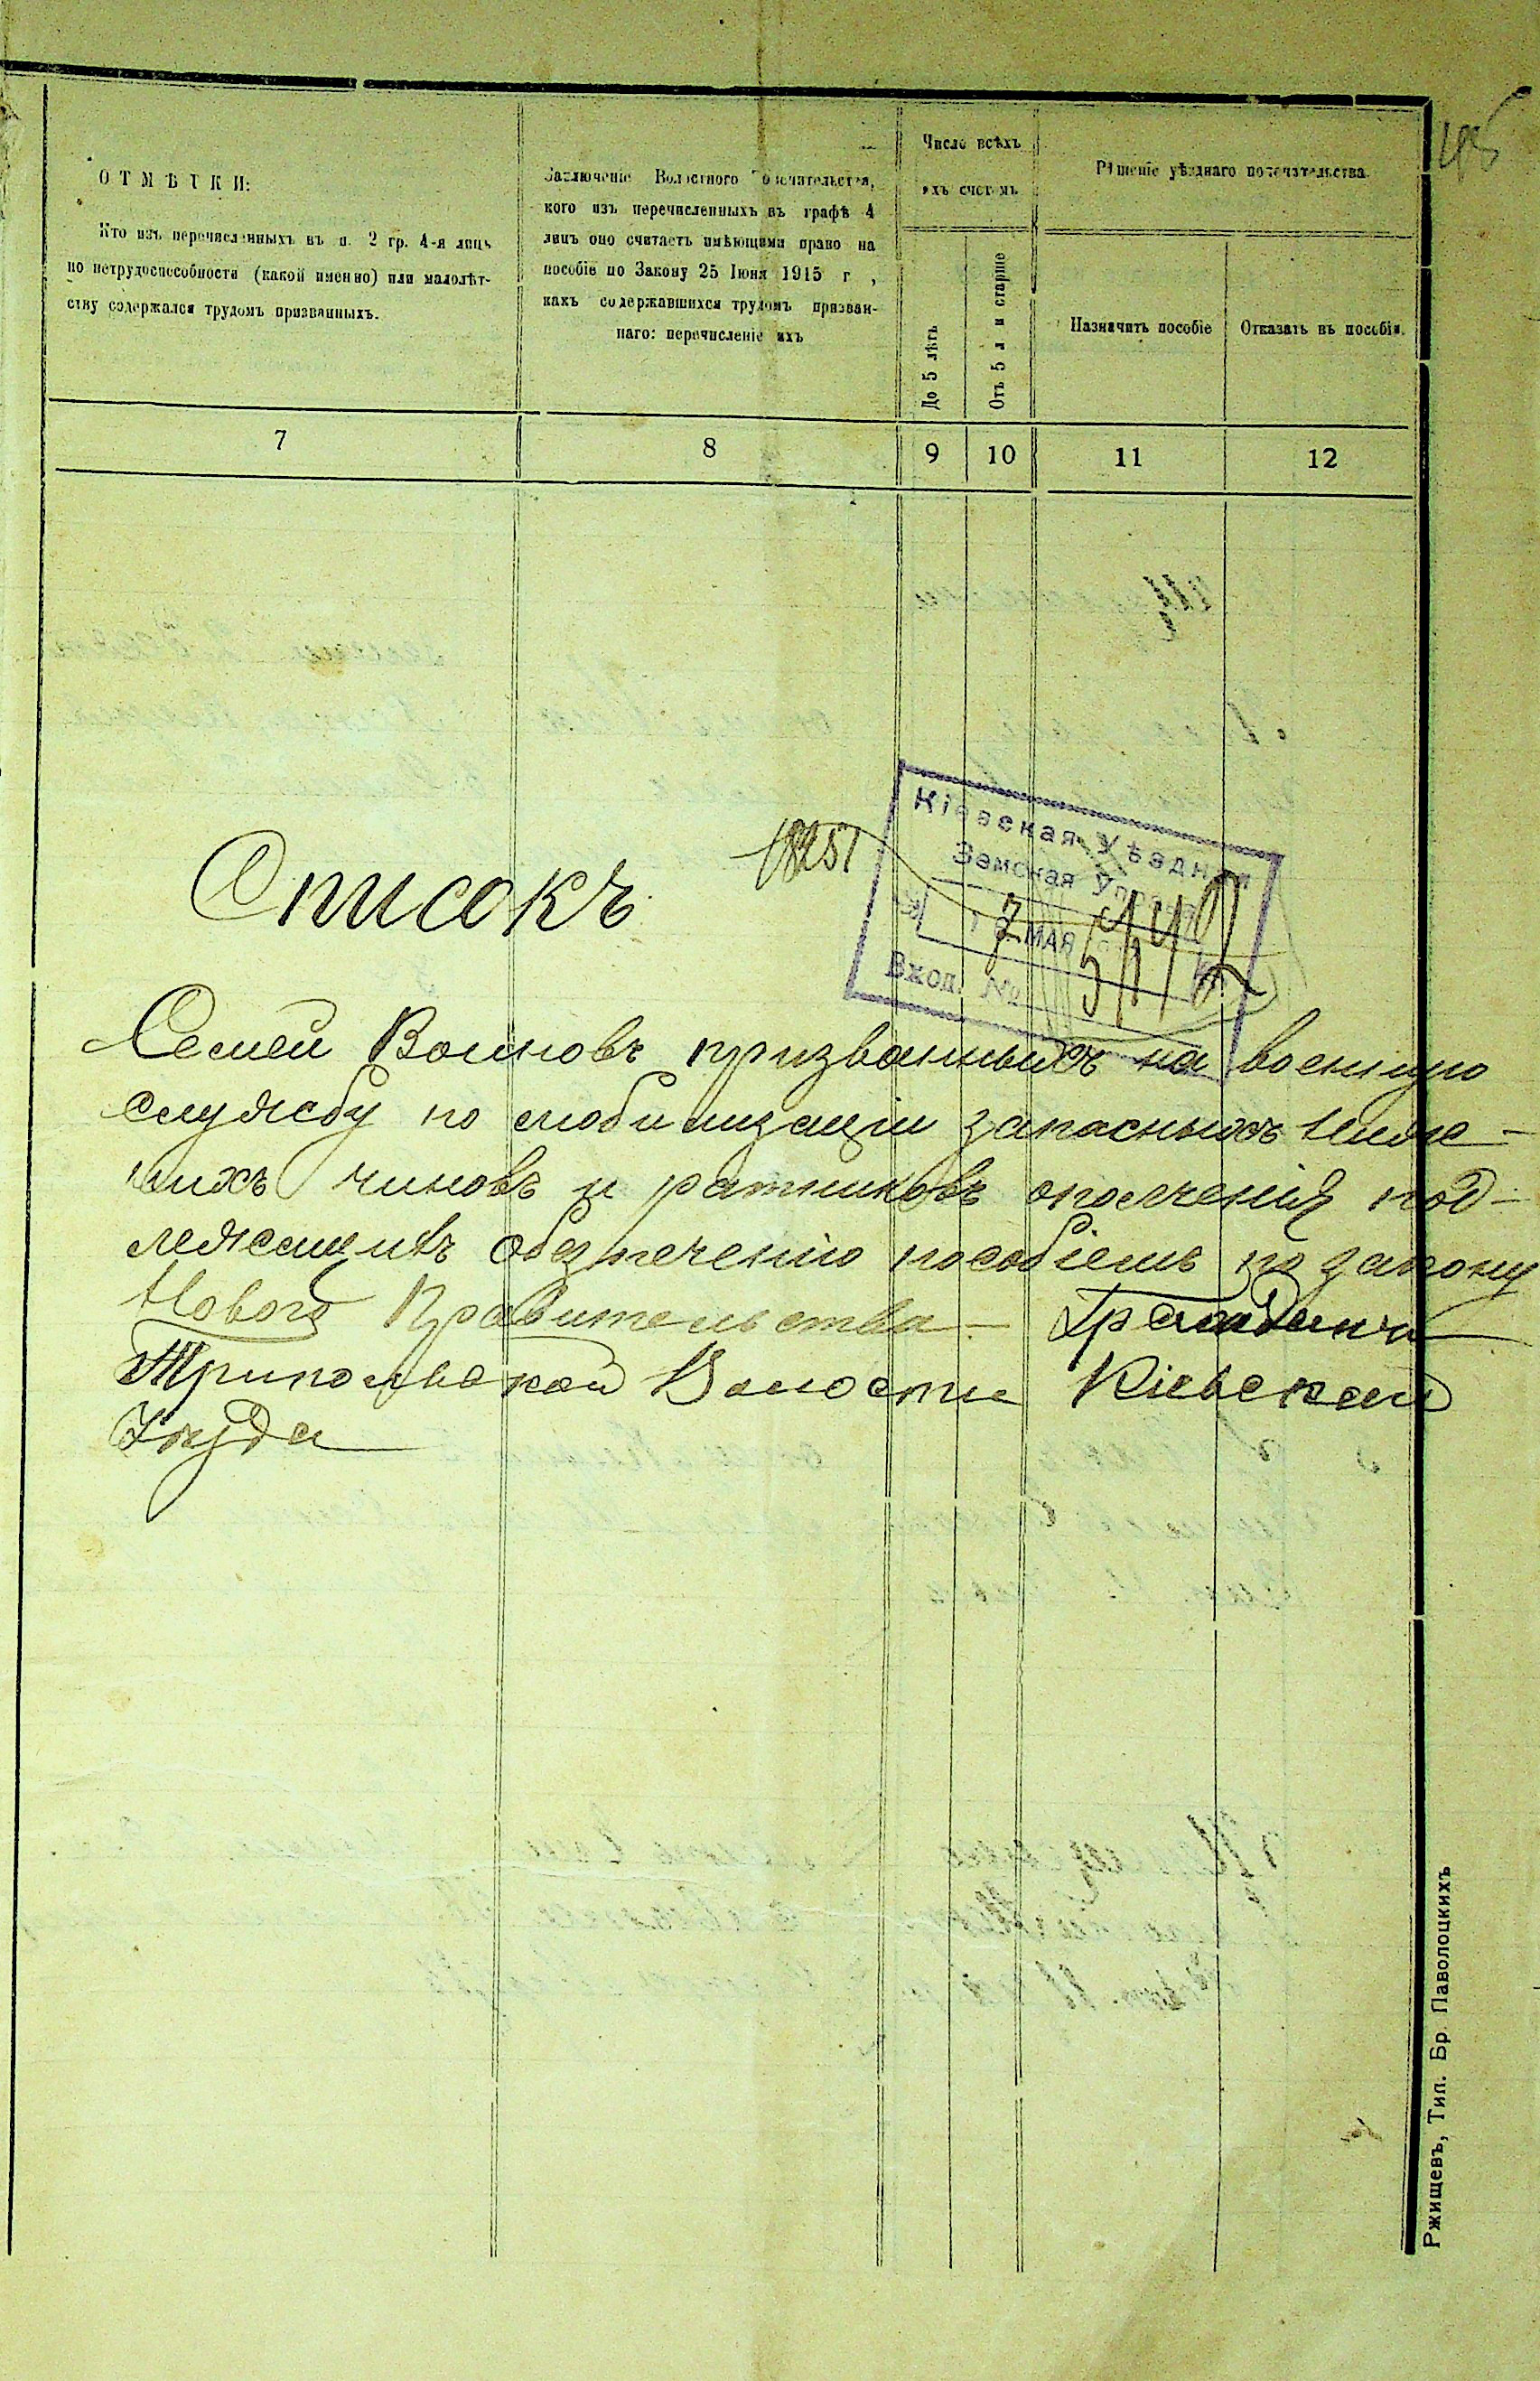 ОТМѢТКИ:
Кто изъ перечисленныхъ въ п. 2 гр. 4-я лицъ
по нетрудоспособности (какой именно) или малолѣт-
ству содержался трудомъ призванныхъ.
Заключеніе Волостного Попечительства,
кого изъ перечисленныхъ въ графѣ 4
лицъ оно считаетъ имѣющими право на
пособіе по Закону 25 Іюня 1915 г ,
какъ содержавшихся трудомъ призван-
наго: перечисленіе ихъ
Число всѣхъ
ихъ счетомъ
До 5 лѣтъ
Отъ 5 л и старше
Рѣшеніе уѣзднаго попечительства.
Назначить пособіе
Отказать въ пособіи.
7 8 9 10 11 12
Кіевская Уѣздная
Земская Управа
МАЯ
Вход. №
18251
Списокъ
Семей Воиновъ призванныхъ на военную
службу по мобилизаціи запасныхъ ниж-
нихъ чиновъ и ратниковъ ополченія под-
лежащихъ обезпеченію пособіемъ по закону
Новаго Правительства – Граждан
Трипольской Волости Кіевскаго
Уѣзда
Ржищевъ, Тип. Бр. Паволоцкихъ